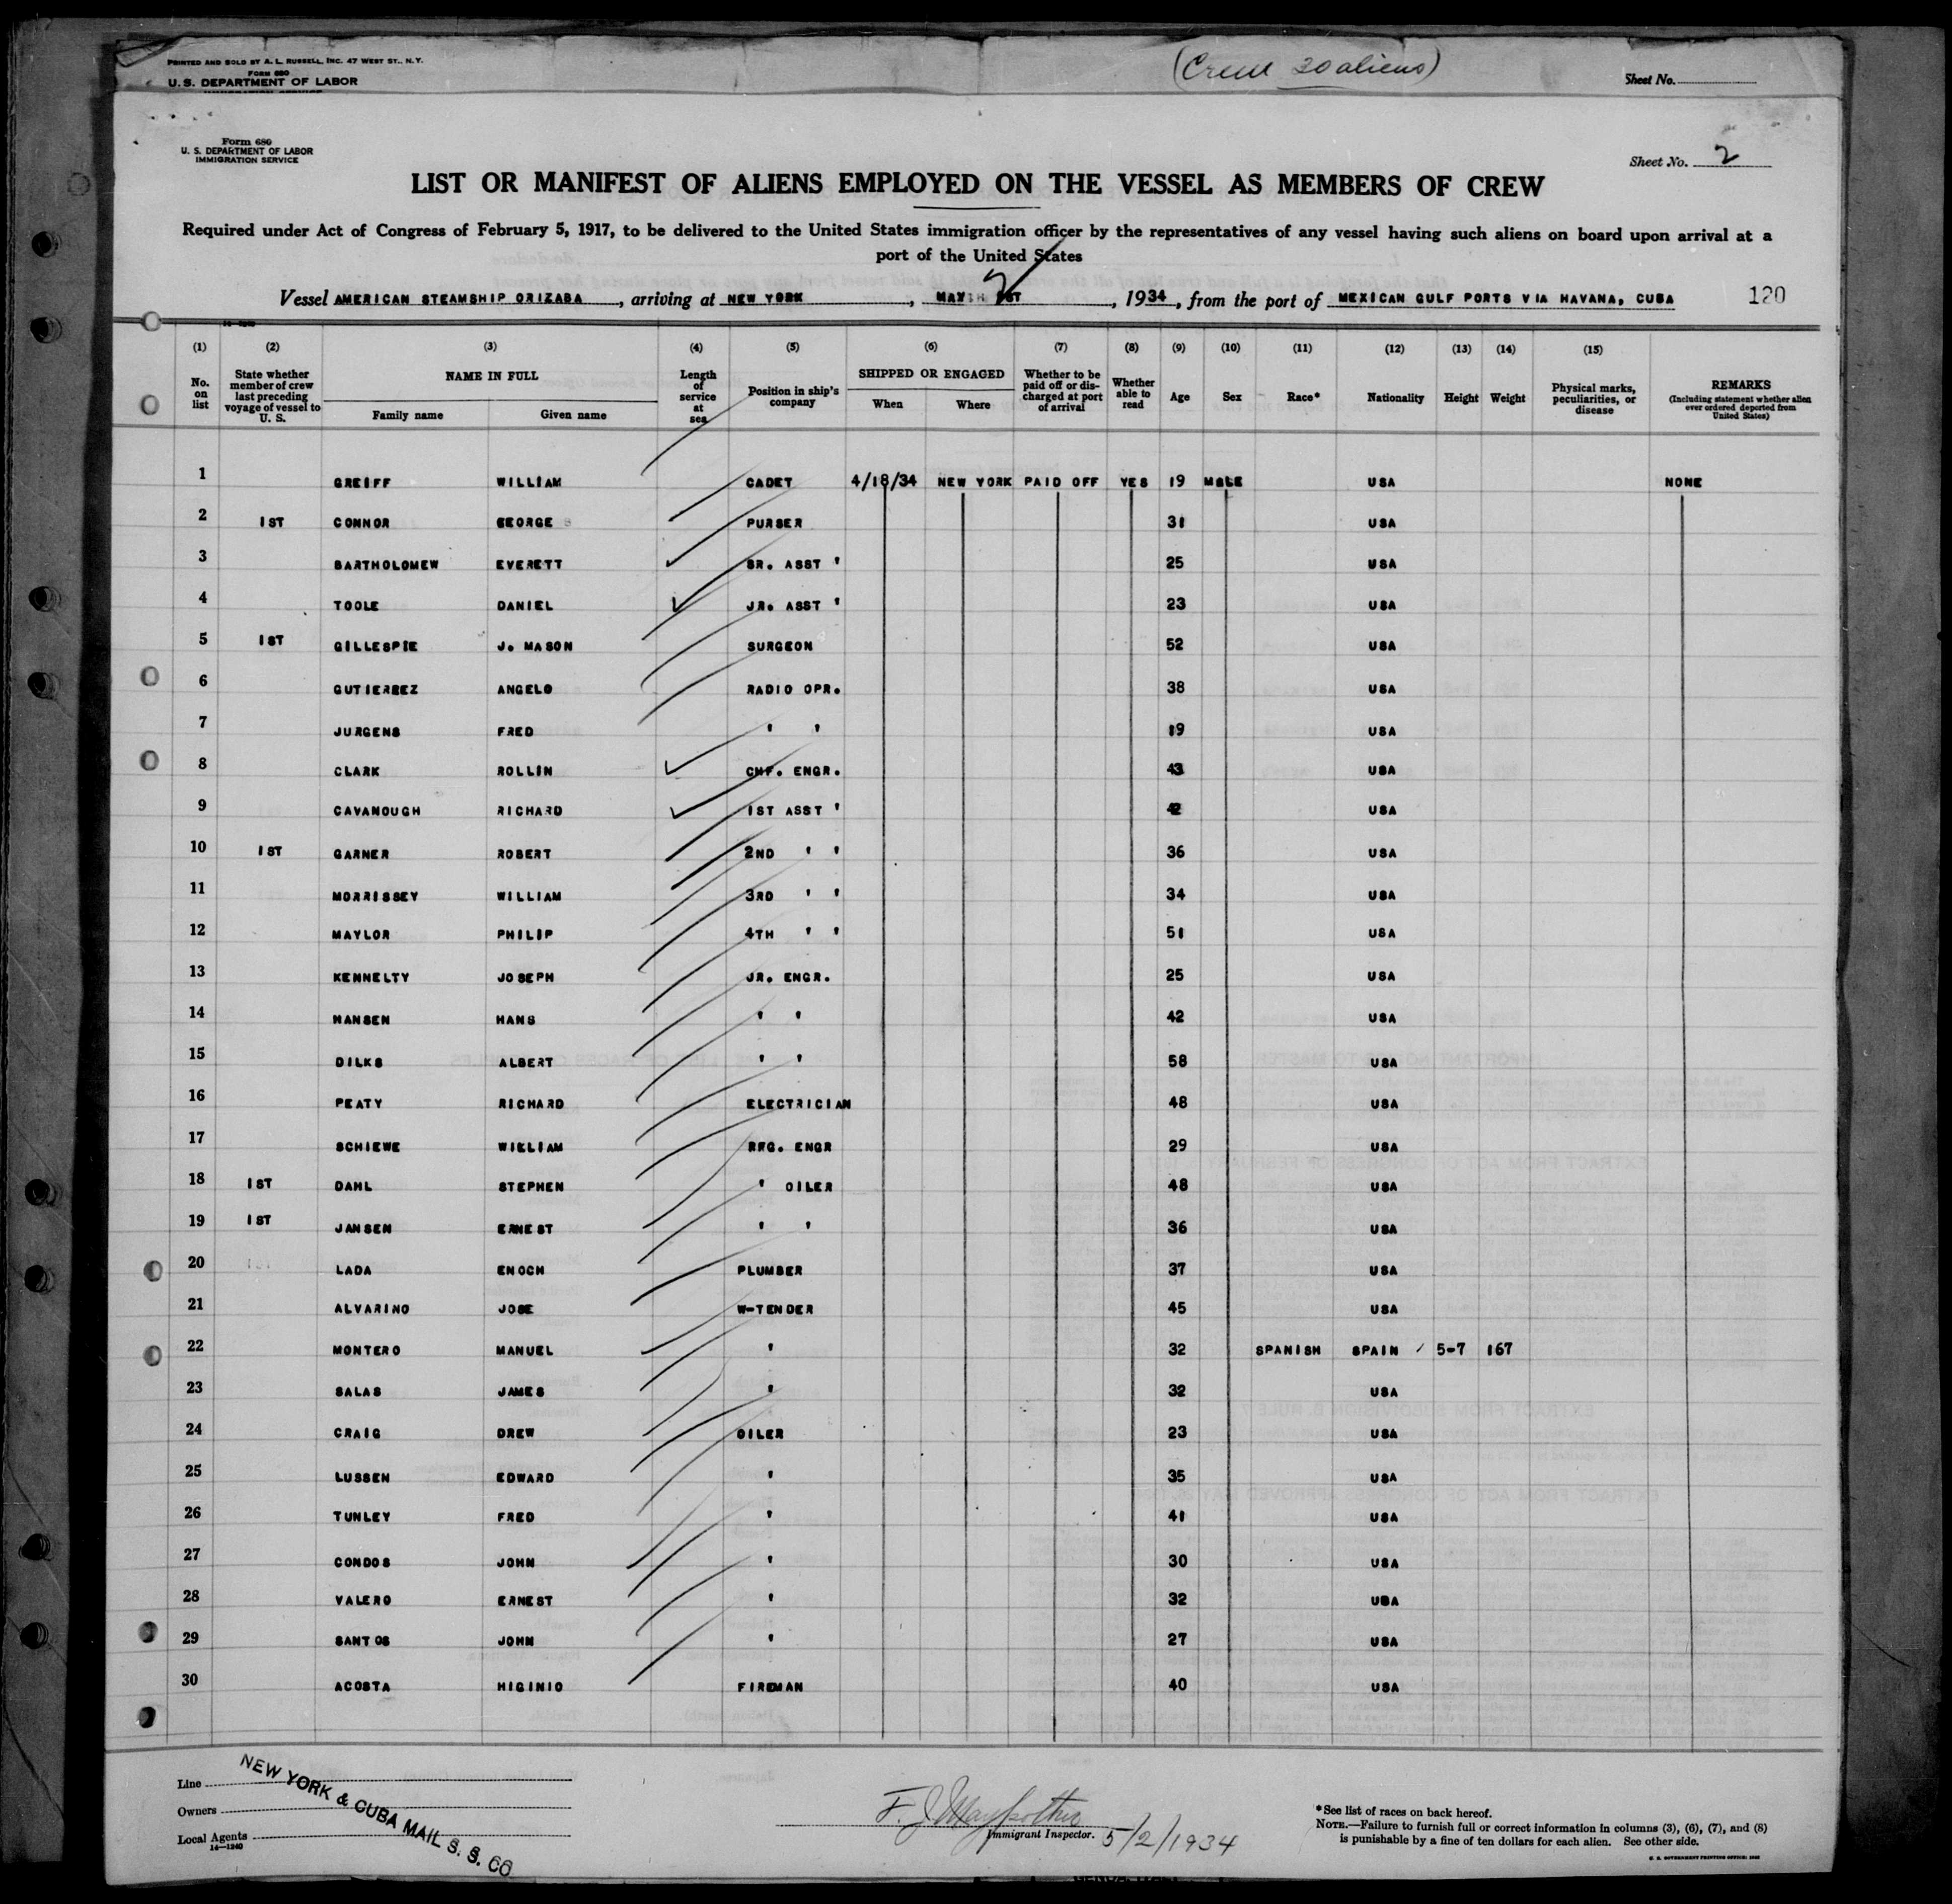 PRINTED AND SOLD BY A. L. RUSSELL, INC. 47 WEST ST., N.Y.
Form 680
U. S. DEPARTMENT OF LABOR
(Crew 30 aliens)
Sheet No.
Form 680
U. S. DEPARTMENT OF LABOR
IMMIGRATION SERVICE
Sheet No. 2
LIST OR MANIFEST OF ALIENS EMPLOYED ON THE VESSEL AS MEMBERS OF CREW
Required under Act of Congress of February 5, 1917, to be delivered to the United States immigration officer by the representatives of any vessel having such aliens on board upon arrival at a
port of the United States
Vessel AMERICAN STEAMSHIP ORIZABA, arriving at NEW YORK, MAY 2 1934, from the port of MEXICAN GULF PORTS VIA HAVANA, CUBA 120
(1) (2) (3) (4) (5) (6) (7) (8) (9) (10) (11) (12) (13) (14) (15)
No. on list
State whether member of crew last preceding voyage of vessel to U. S.
NAME IN FULL
Family name Given name
Length of service at sea
Position in ship's company
SHIPPED OR ENGAGED
When Where
Whether to be paid off or discharged at port of arrival
Whether able to read
Age Sex Race* Nationality Height Weight
Physical marks, peculiarities, or disease
REMARKS
(Including statement whether alien ever ordered deported from United States)
1 GREIFF WILLIAM CADET 4/18/34 NEW YORK PAID OFF YES 19 MALE USA NONE
2 1ST CONNOR GEORGE PURSER 31 USA
3 BARTHOLOMEW EVERETT SR. ASST ' 25 USA
4 TOOLE DANIEL JR. ASST ' 23 USA
5 1ST GILLESPIE J. MASON SURGEON 52 USA
6 GUTIERREZ ANGELO RADIO OPR. 38 USA
7 JURGENS FRED ' ' 19 USA
8 CLARK ROLLIN CHF. ENGR. 43 USA
9 CAVANOUGH RICHARD 1ST ASST ' 42 USA
10 1ST GARNER ROBERT 2ND ' ' 36 USA
11 MORRISSEY WILLIAM 3RD ' ' 34 USA
12 MAYLOR PHILIP 4TH ' ' 51 USA
13 KENNELTY JOSEPH JR. ENGR. 25 USA
14 HANSEN HANS ' ' 42 USA
15 DILKS ALBERT ' ' 58 USA
16 PEATY RICHARD ELECTRICIAN 48 USA
17 SCHIEWE WILLIAM RFG. ENGR 29 USA
18 1ST DAHL STEPHEN ' OILER 48 USA
19 1ST JANSEN ERNEST ' ' 36 USA
20 LADA ENOCH PLUMBER 37 USA
21 ALVARINO JOSE W-TENDER 45 USA
22 MONTERO MANUEL ' 32 SPANISH SPAIN 5-7 167
23 SALAS JAMES ' 32 USA
24 CRAIG DREW OILER 23 USA
25 LUSSEN EDWARD ' 35 USA
26 TUNLEY FRED ' 41 USA
27 CONDOS JOHN ' 30 USA
28 VALERO ERNEST ' 32 USA
29 SANTOS JOHN ' 27 USA
30 ACOSTA HIGINIO FIREMAN 40 USA
Line
Owners
Local Agents
14—1240
NEW YORK & CUBA MAIL S. S. CO
Immigrant Inspector. 5/2/1934
*See list of races on back hereof.
NOTE.—Failure to furnish full or correct information in columns (3), (6), (7), and (8)
is punishable by a fine of ten dollars for each alien. See other side.